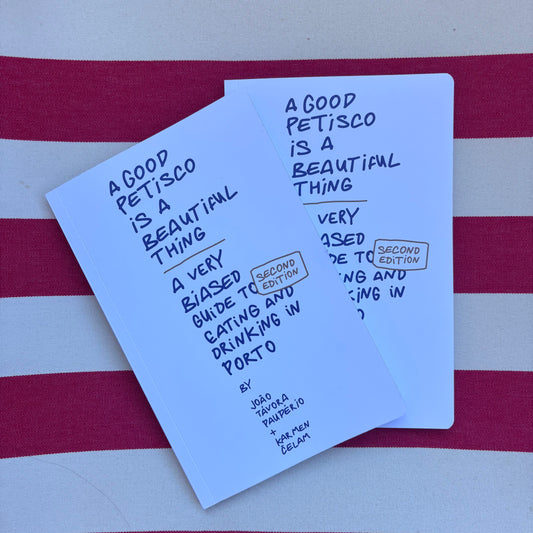 A GOOD
PETISCO
IS A
BEAUTIFUL
THING
A VERY
BIASED
GUIDE TO
EATING AND
DRINKING IN
PORTO
SECOND
EDITION
BY
JOÃO
TÁVORA
PAUPÉRIO
+
KARMEN
ČELAM
A GOOD
PETISCO
IS A
BEAUTIFUL
THING
VERY
ASED
DE TO
ING AND
KING IN
O
SECOND
EDITION